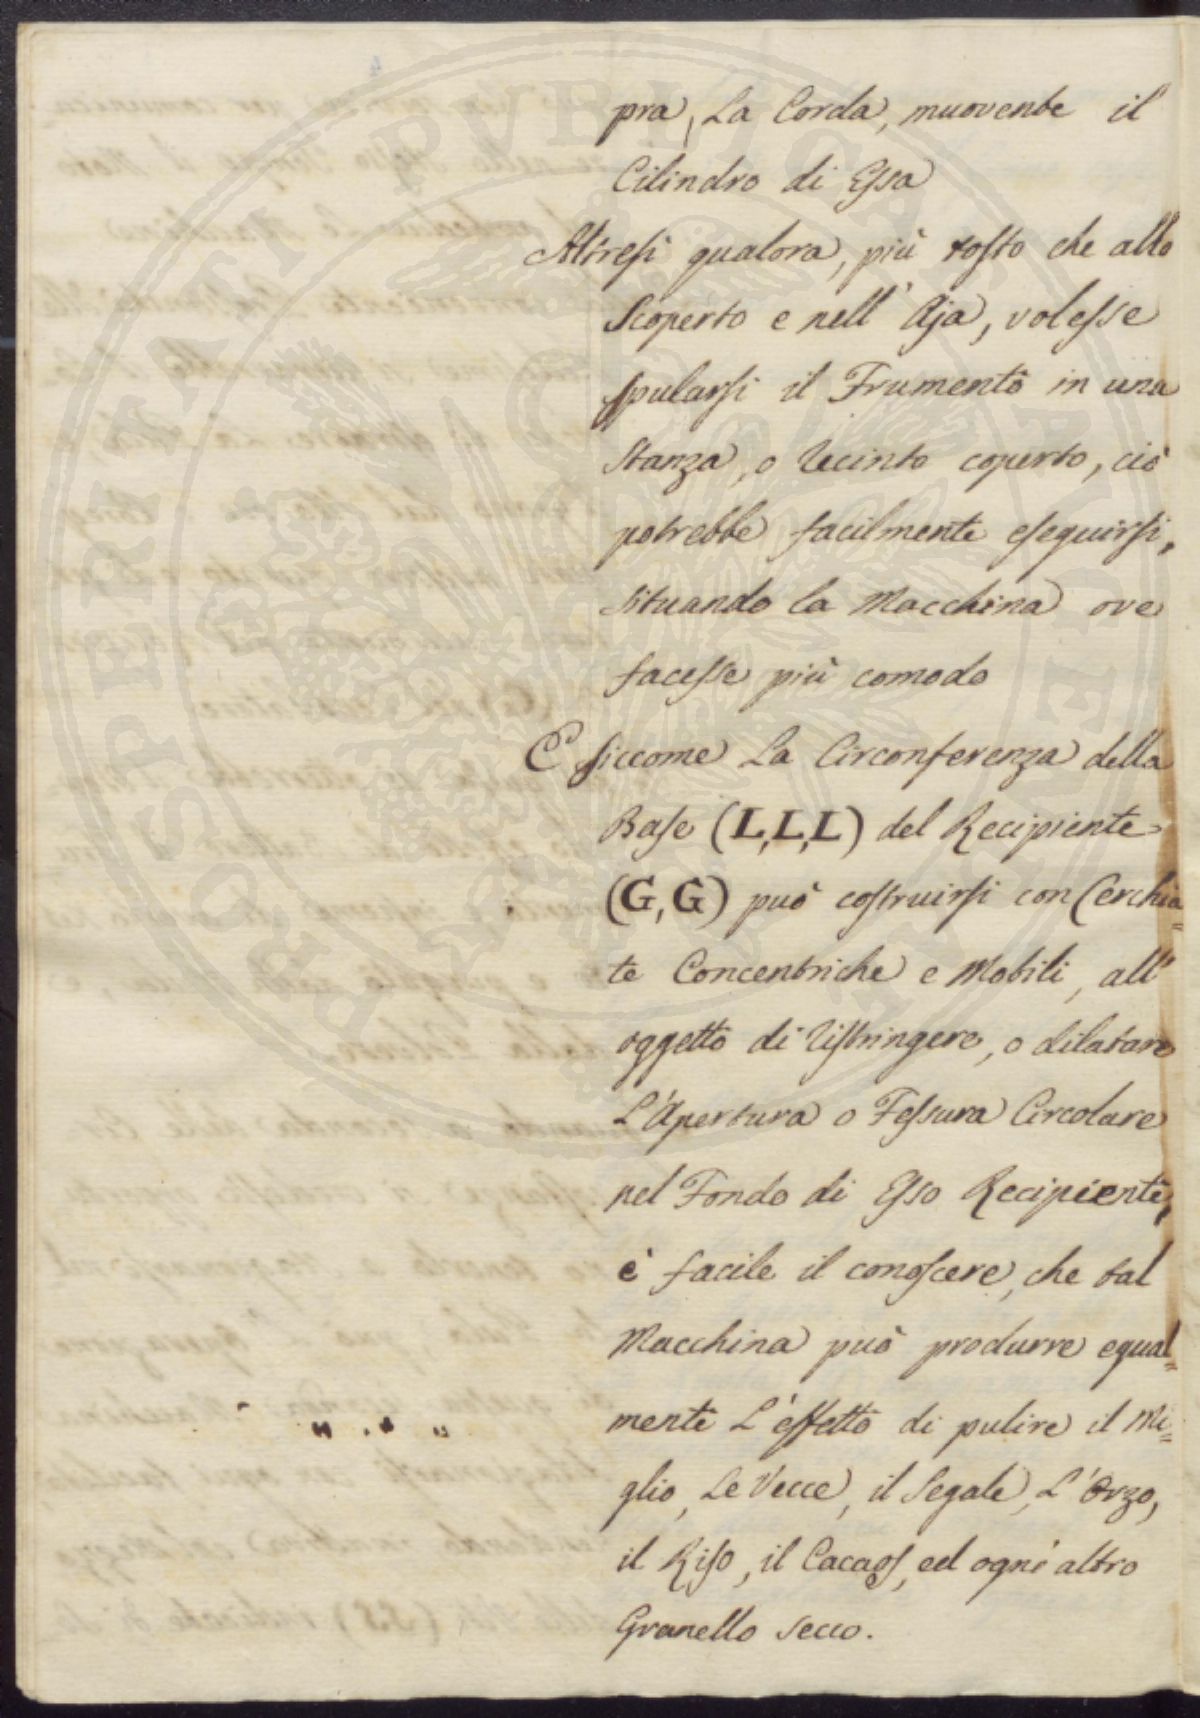 pra, La Corda, muovente il
Cilindro di Essa
Altresi qualora, più tosto che allo
Scoperto e nell' Aja, volesse
spularsi il Frumento in una
Stanza, o Recinto coperto, ciò
potrebbe facilmente eseguirsi,
situando la Macchina ove
facesse più comodo
E siccome La Circonferenza della
Base (L,L,L) del Recipiente
(G,G) può costruirsi con Cerchia=
te Concentriche e Mobili, all'
oggetto di ristringere, o dilatare
L'Apertura o Fessura Circolare
nel Fondo di Esso Recipiente,
è facile il conoscere, che tal
Macchina può produrre equal=
mente L'effetto di pulire il Mi=
glio, Le Vecce, il Segale, L'Orzo,
il Riso, il Cacaos, ed ogni altro
Granello secco.
PROSPERITATI PVBLICAE AVGENDAE